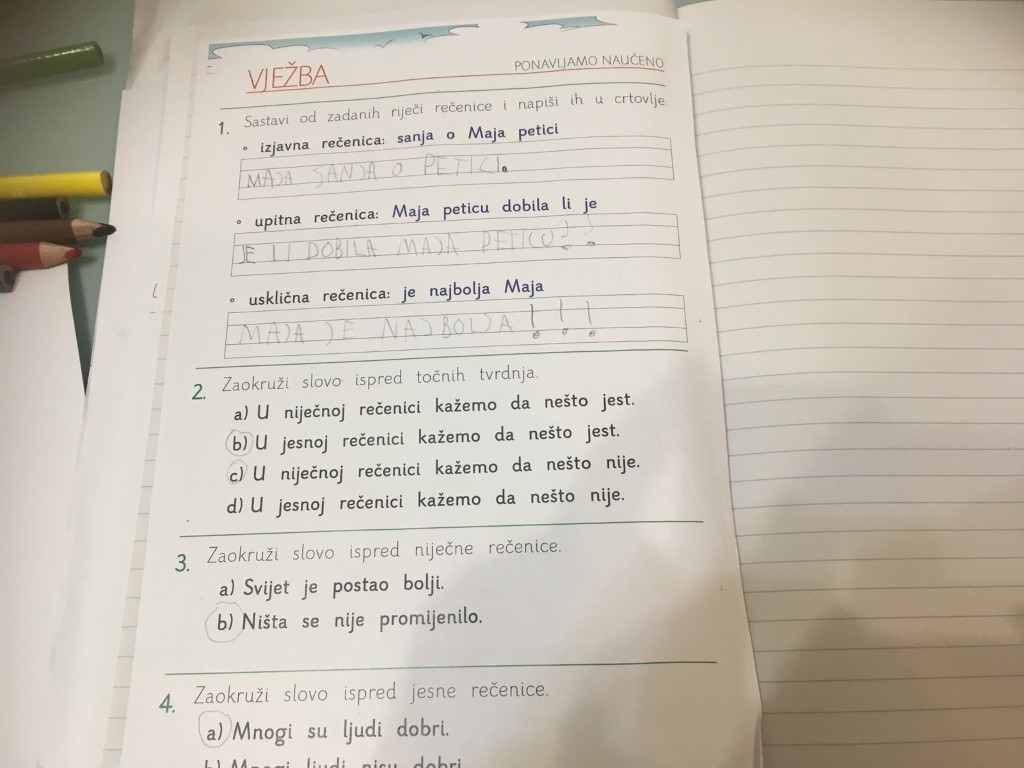 VJEŽBA
PONAVLJAMO NAUČENO
1. Sastavi od zadanih riječi rečenice i napiši ih u crtovlje.
• izjavna rečenica: sanja o Maja petici
MAJA SANJA O PETICI.
• upitna rečenica: Maja peticu dobila li je
JE LI DOBILA MAJA PETICU??
• usklična rečenica: je najbolja Maja
MAJA JE NAJBOLJA !!!
2. Zaokruži slovo ispred točnih tvrdnja.
a) U niječnoj rečenici kažemo da nešto jest.
b) U jesnoj rečenici kažemo da nešto jest.
c) U niječnoj rečenici kažemo da nešto nije.
d) U jesnoj rečenici kažemo da nešto nije.
3. Zaokruži slovo ispred niječne rečenice.
a) Svijet je postao bolji.
b) Ništa se nije promijenilo.
4. Zaokruži slovo ispred jesne rečenice.
a) Mnogi su ljudi dobri.
b) Mnogi ljudi nisu dobri